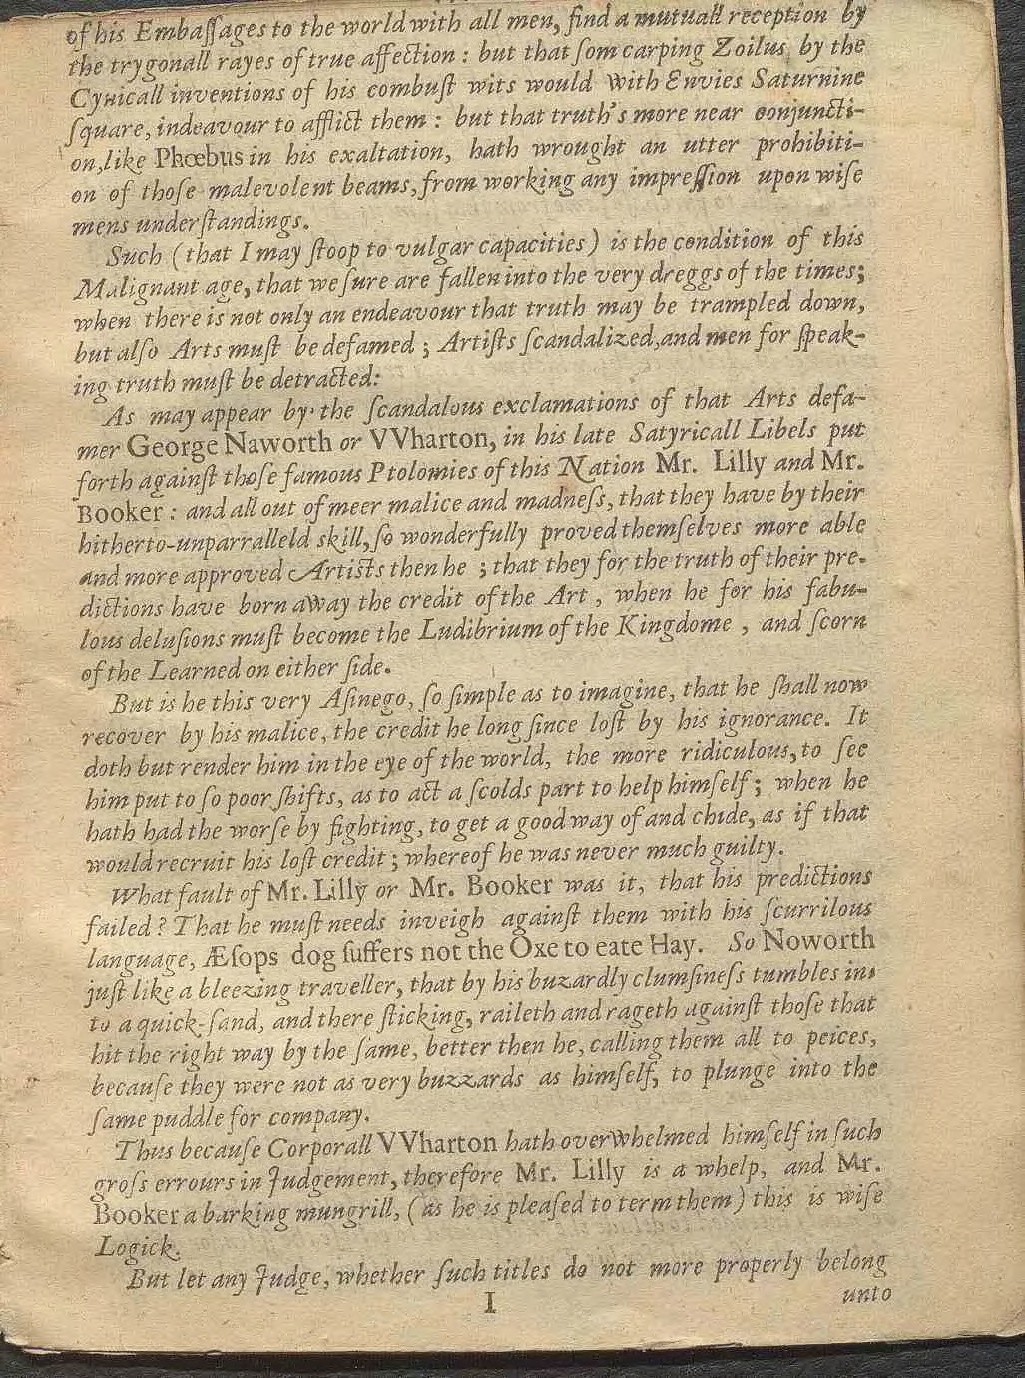 of his Embaſſages to the world with all men, find a mutuall reception by
the trygonall rayes of true affection : but that ſom carping Zoilus by the
Cynicall inventions of his combuſt wits would with Envies Saturnine
ſquare, indeavour to afflict them : but that truth's more near conjuncti-
on, like Phœbus in his exaltation, hath wrought an utter prohibiti-
on of thoſe malevolent beams, from working any impreſſion upon wiſe
mens underſtandings.
Such (that I may ſtoop to vulgar capacities) is the condition of this
Malignant age, that we ſure are fallen into the very dreggs of the times;
when there is not only an endeavour that truth may be trampled down,
but alſo Arts muſt be defamed ; Artiſts ſcandalized, and men for ſpeak-
ing truth muſt be detracted:
As may appear by the ſcandalous exclamations of that Arts defa-
mer George Naworth or VVharton, in his late Satyricall Libels put
forth againſt thoſe famous Ptolomies of this Nation Mr. Lilly and Mr.
Booker : and all out of meer malice and madneſs, that they have by their
hitherto-unparralleld skill, ſo wonderfully proved themſelves more able
and more approved Artists then he ; that they for the truth of their pre-
dictions have born away the credit of the Art , when he for his fabu-
lous deluſions muſt become the Ludibrium of the Kingdome , and ſcorn
of the Learned on either ſide.
But is he this very Aſinego, ſo ſimple as to imagine, that he ſhall now
recover by his malice, the credit he long ſince loſt by his ignorance. It
doth but render him in the eye of the world, the more ridiculous, to ſee
him put to ſo poor ſhifts, as to act a ſcolds part to help himſelf ; when he
hath had the worſe by fighting, to get a good way of and chide, as if that
would recruit his loſt credit ; whereof he was never much guilty.
What fault of Mr. Lilly or Mr. Booker was it, that his predictions
failed? That he muſt needs inveigh againſt them with his ſcurrilous
language, Æſops dog ſuffers not the Oxe to eate Hay. So Noworth
juſt like a bleezing traveller, that by his buzardly clumſineſs tumbles in-
to a quick-ſand, and there ſticking, raileth and rageth againſt thoſe that
hit the right way by the ſame, better then he, calling them all to peices,
becauſe they were not as very buzzards as himſelf, to plunge into the
ſame puddle for company.
Thus becauſe Corporall VVharton hath overwhelmed himſelf in ſuch
groſs errours in Judgement, therefore Mr. Lilly is a whelp, and Mr.
Booker a barking mungrill, (as he is pleaſed to term them) this is wiſe
Logick.
But let any Judge, whether ſuch titles do not more properly belong
I
unto